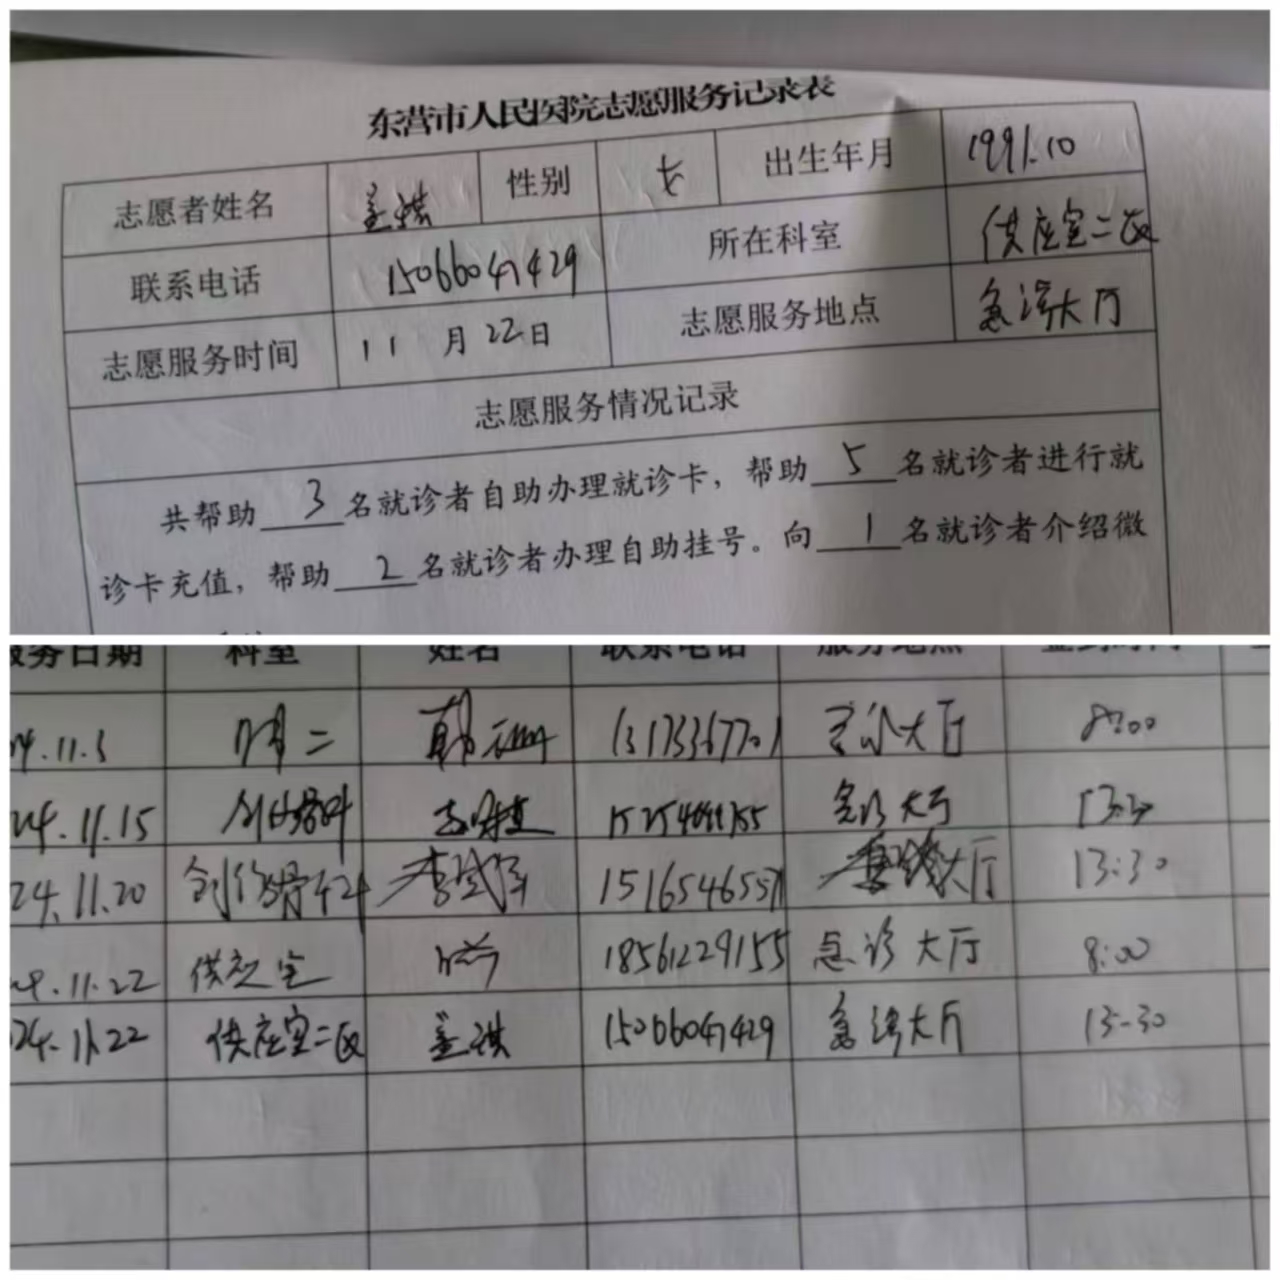 东营市人民医院志愿服务记录表
志愿者姓名 孟祺 性别 女 出生年月 1991.10
联系电话 15066047429 所在科室 供应室二区
志愿服务时间 11月22日 志愿服务地点 急诊大厅
志愿服务情况记录
共帮助 3 名就诊者自助办理就诊卡，帮助 5 名就诊者进行就
诊卡充值，帮助 2 名就诊者办理自助挂号。向 1 名就诊者介绍微
服务日期 科室 姓名 联系电话 服务地点 签到时间
24.11.3 二 韩 急诊大厅 8:00
24.11.15 创伤骨科 急诊大厅 13:30
24.11.20 创伤骨科 李 大厅 13:30
24.11.22 供应室 18561229155 急诊大厅 8:00
24.11.22 供应室二区 孟祺 15066047429 急诊大厅 13-30